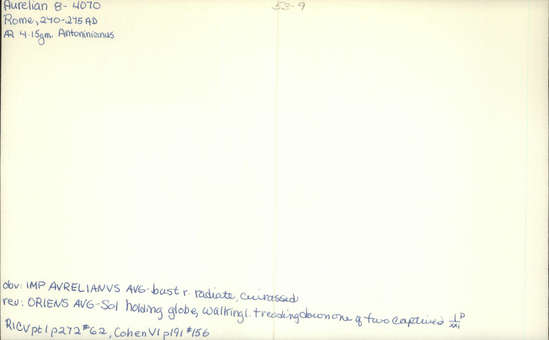 Aurelian B- 4070
53-9
Rome, 270-275 AD
AR 4.15gm. Antoninianus
obv: IMP AVRELIANVS AVG-bust r. radiate, cuirassed
rev: ORIENS AVG-Sol holding globe, walking l. treading down one of two captives
RIC V pt 1 p272 #62, Cohen VI p191 #156